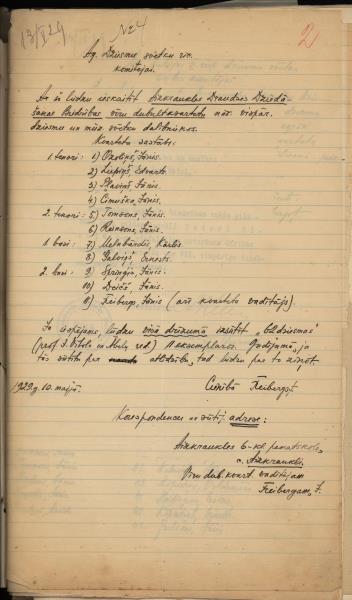 13/V 29
No 4
2
Ag. Dziesmu svētku rīc.
komitejai.
Ar šo lūdzu ieskaitīt Aizkraukles Draudzes Dziedā-
šanas Biedrības vīru dubultkvartetu mūs. vispār.
dziesmu un mūz. svētku dalībniekos.
Kvarteta sastāvs:
1. tenori: 1) Ozoliņš, Jānis.
2) Liepiņš, Edvards.
3) Pļaviņš, Jānis.
4) Cimuška, Jānis.
2. tenori: 5) Tomsons, Jānis.
6) Jānis.
1. basi: 7) Melnbārdis, Kārlis.
8) Galviņš, Ernests.
2. basi: 9) Spriņģis, Jānis.
10) Deičs, Jānis.
11) Freibergs, Jānis (arī kvarteta vadītājs).
Ja iespējams, lūdzu visā drīzumā izsūtīt „
(prof. J. Vītola red.) 11 eksemplaros. Gadījumā, ja
tās sūtītu par atlīdzību, tad lūdzu par to ziņot.
1929. g. 10. maijā.
Cienībā Freibergs
Korespondences uz adrese:
Aizkraukles 6-kl. pamatskola,
Aizkrauklē.
Vīru dub. kvart. vadītājam
Freibergam, J.